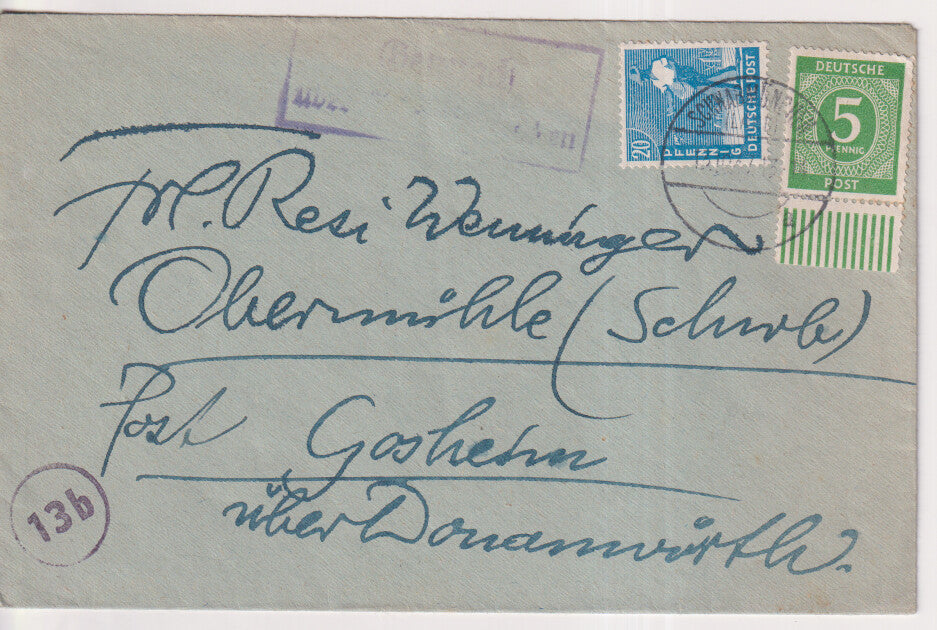 über
20
PFENNIG
DEUTSCHE POST
DEUTSCHE
5
PFENNIG
POST
Frl. Resi Wenninger
Obermühle (Schwb)
Post Gosheim
über Donauwörth.
13b